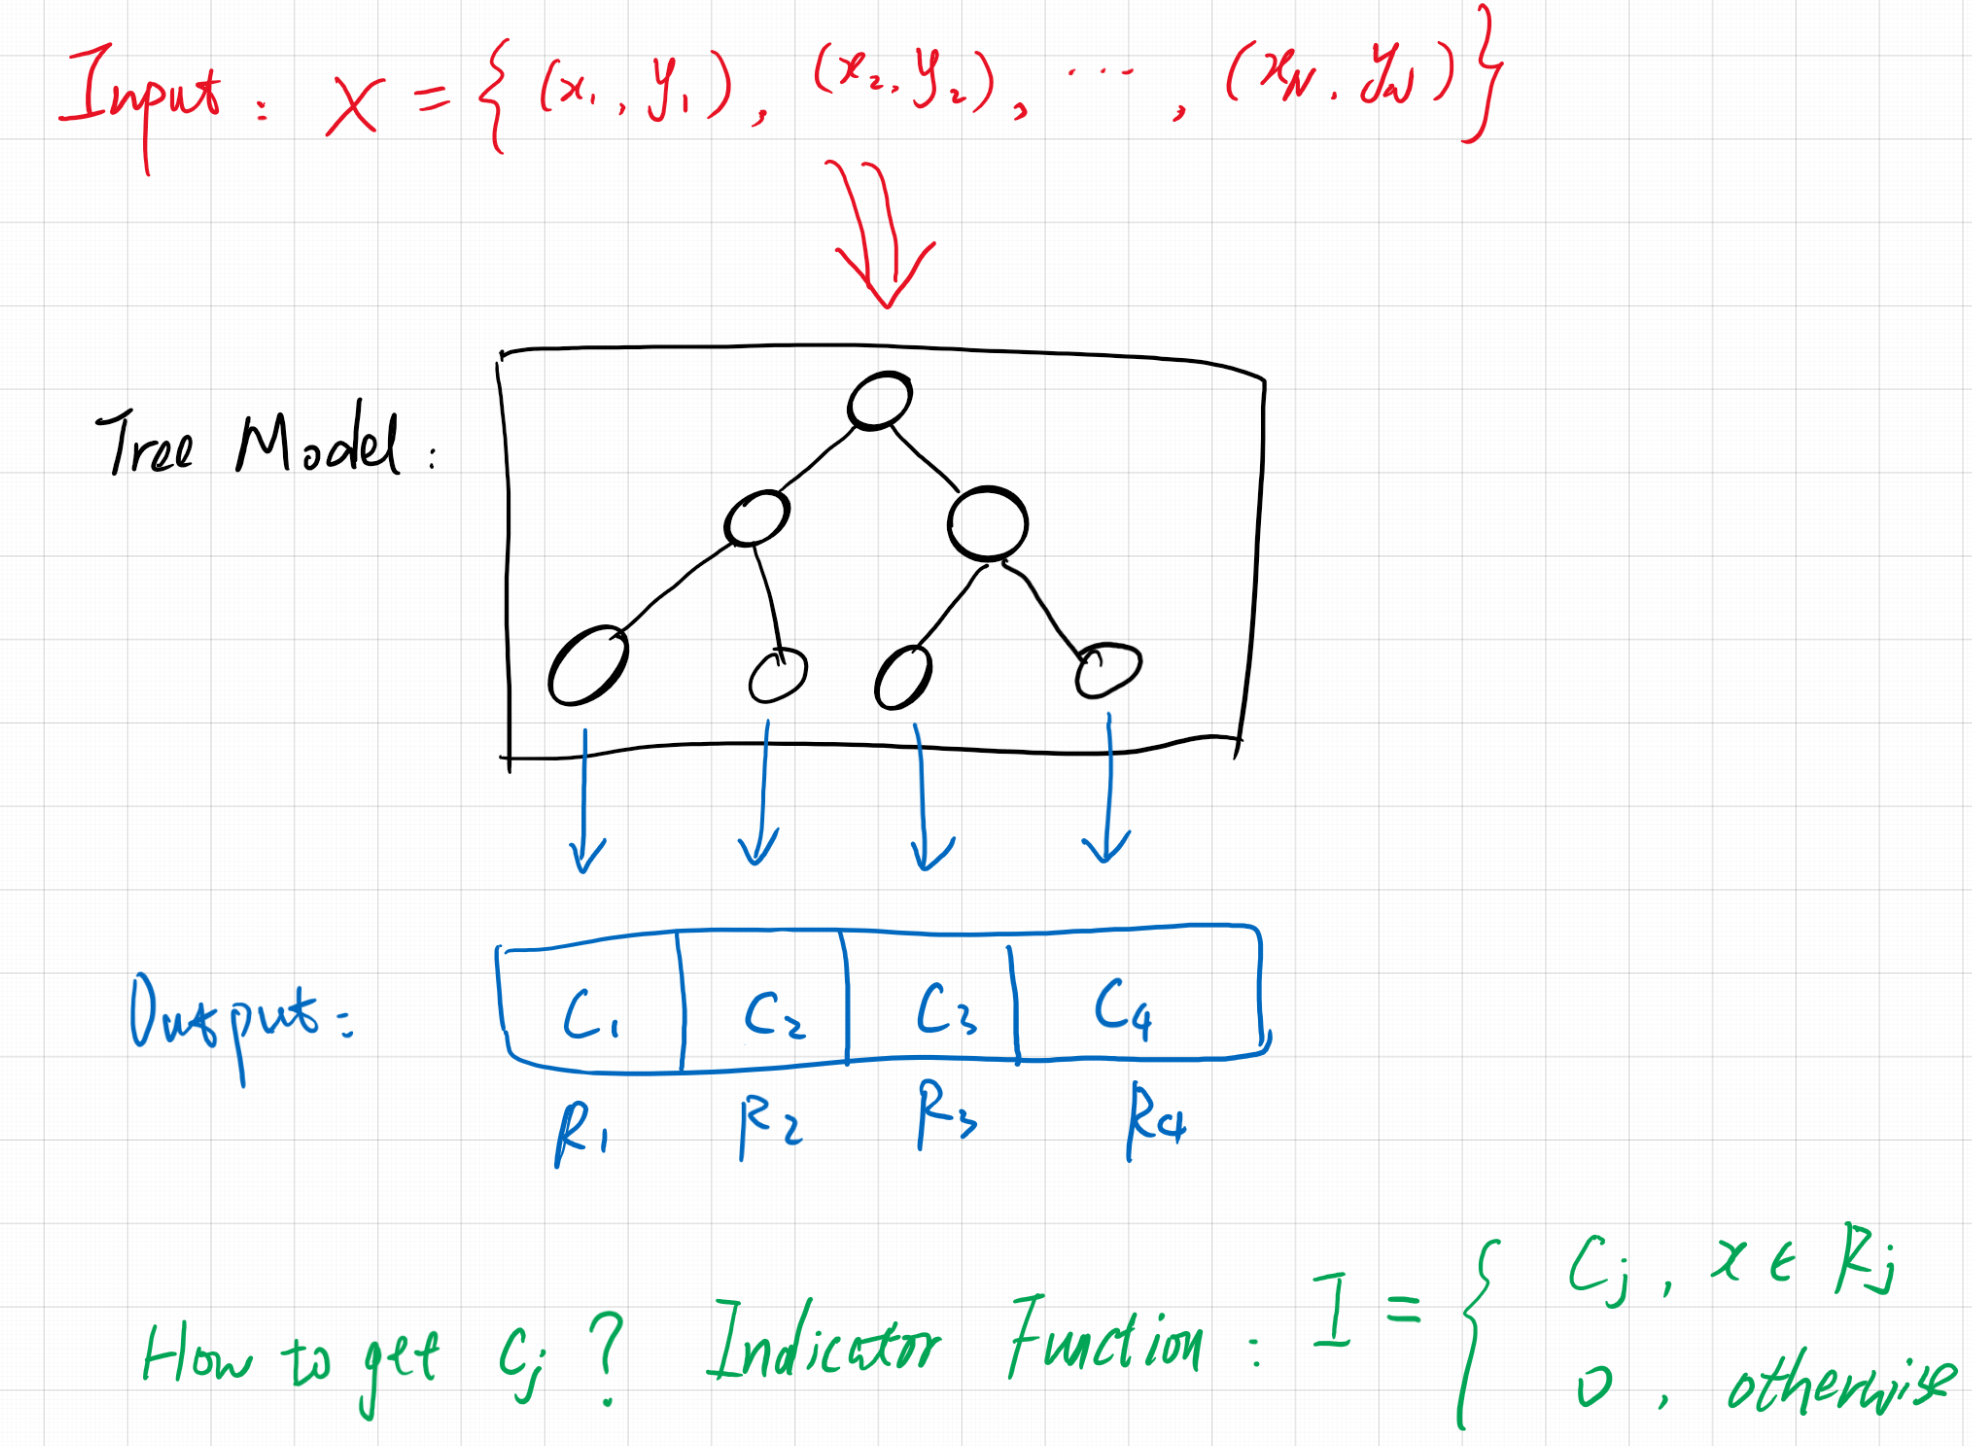 Input: X = { (x₁, y₁), (x₂, y₂), ..., (x_N, y_N) }
Tree Model:
Output: C₁ C₂ C₃ C₄
R₁ R₂ R₃ R₄
How to get C_j ? Indicator Function : I = { C_j , x ∈ R_j
0 , otherwise